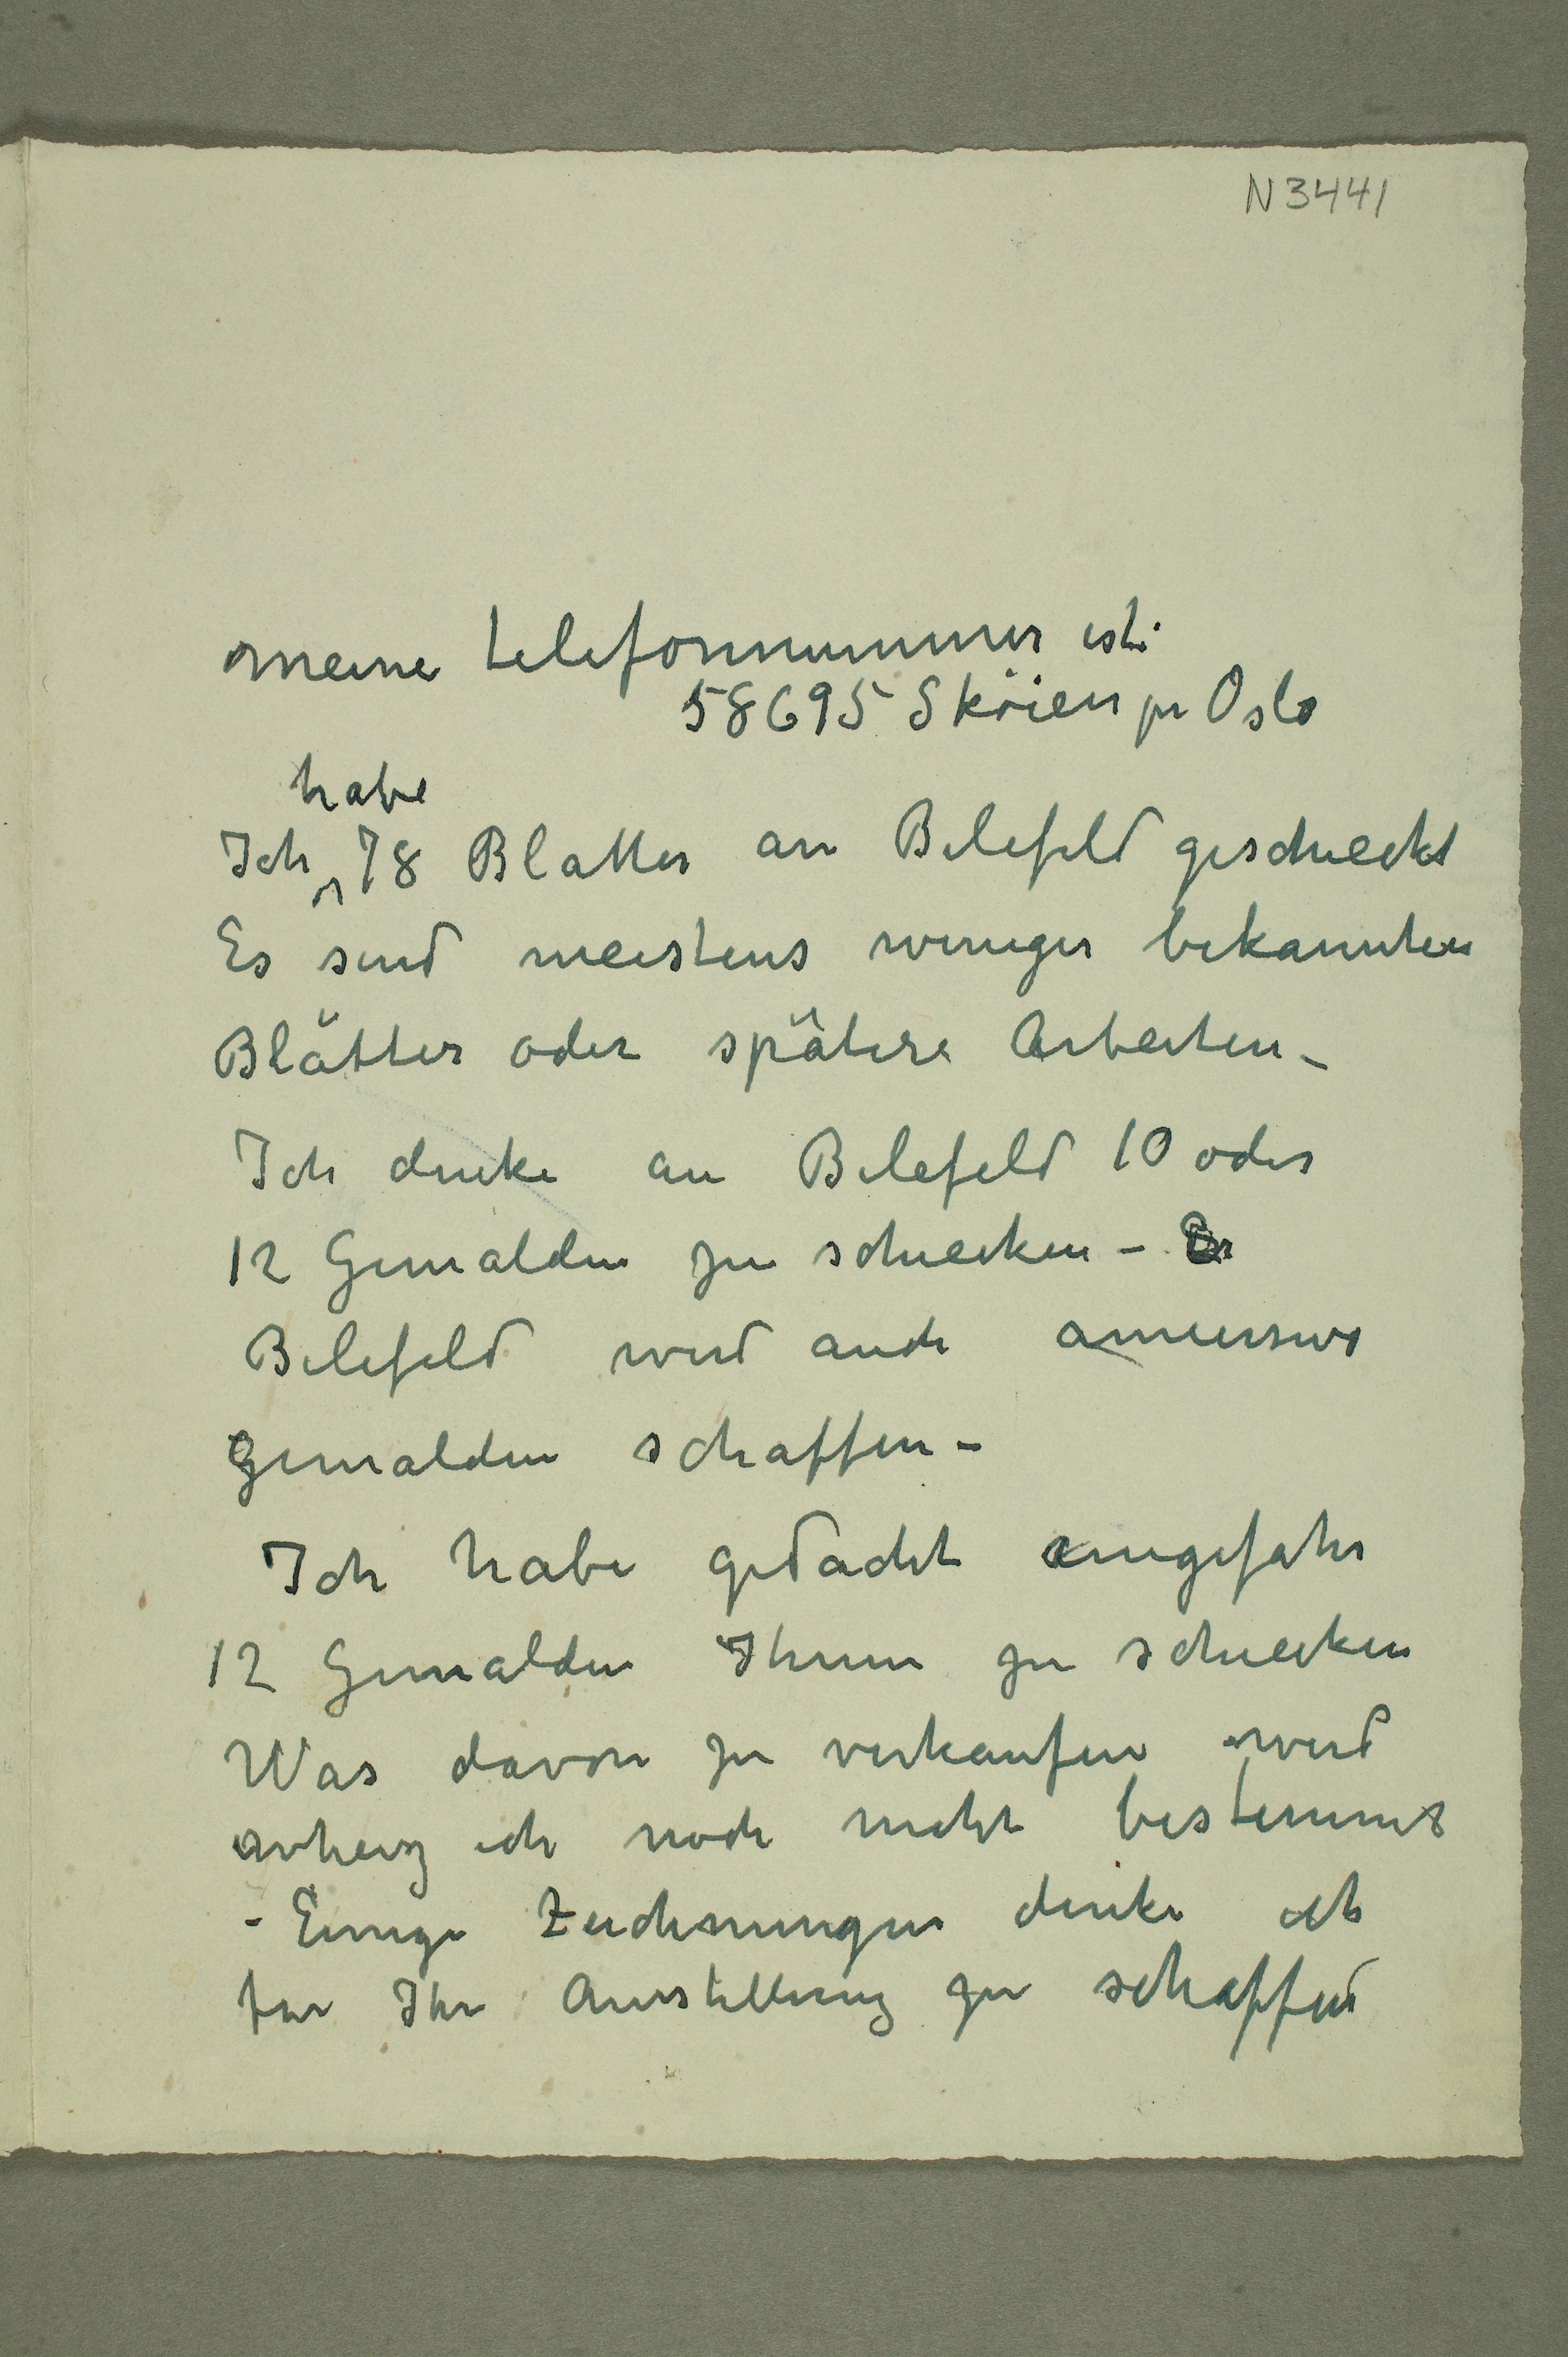 N 3441
meine telefonnummer ist:
58695 Sköien pr Oslo
habe
Ich 78 Blatter an Bilefeld geschieckt
Es sind meistens weniger bekannten
Blätter oder spätere Arbeiten –
Ich denke an Bilefeld 10 oder
12 Gemalden zu schiecken –
Bilefeld wird auch
gemalden schaffen –
Ich habe gedacht ungefahr
12 Gemalden Ihnen zu schiecken
Was davon zu verkaufen wird
ich noch nicht bestemmt
– Einige Zeichnungen denke ich
fur Ihr Ausstellung zu schaffen